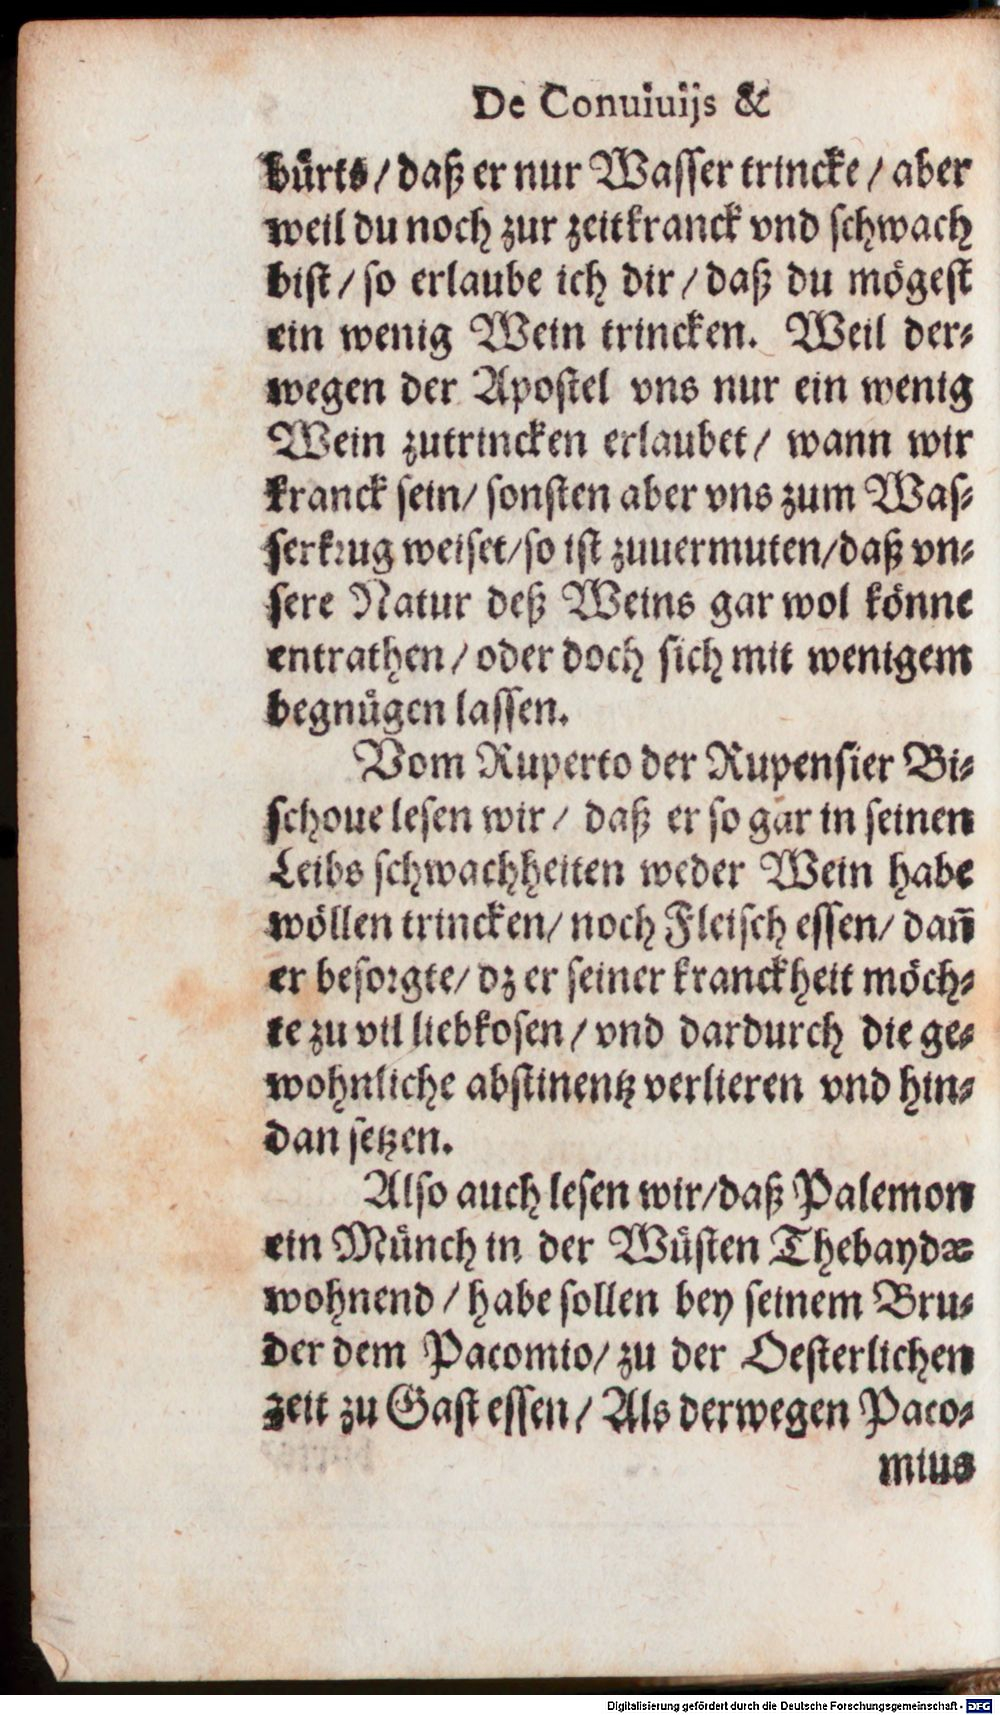 De Conuiuijs &
bürts/ daß er nur Wasser trincke/ aber
weil du noch zur zeit kranck vnd schwach
bist/ so erlaube ich dir/ daß du mögest
ein wenig Wein trincken. Weil der⸗
wegen der Apostel vns nur ein wenig
Wein zutrincken erlaubet/ wann wir
kranck sein/ sonsten aber vns zum Was⸗
serkrug weiset/ so ist zuuermuten/ daß vn⸗
sere Natur deß Weins gar wol könne
entrathen/ oder doch sich mit wenigem
begnügen lassen.
Vom Ruperto der Rupensier Bi⸗
schoue lesen wir/ daß er so gar in seinen
Leibs schwachheiten weder Wein habe
wöllen trincken/ noch Fleisch essen/ dañ
er besorgte/ dz er seiner kranckheit möch⸗
te zu vil liebkosen/ vnd dardurch die ge⸗
wohnliche abstinentz verlieren vnd hin⸗
dan setzen.
Also auch lesen wir/ daß Palemon
ein Münch in der Wüsten Thebaydæ
wohnend/ habe sollen bey seinem Bru⸗
der dem Pacomio/ zu der Oesterlichen
zeit zu Gast essen/ Als derwegen Paco⸗
mius
Digitalisierung gefördert durch die Deutsche Forschungsgemeinschaft - DFG